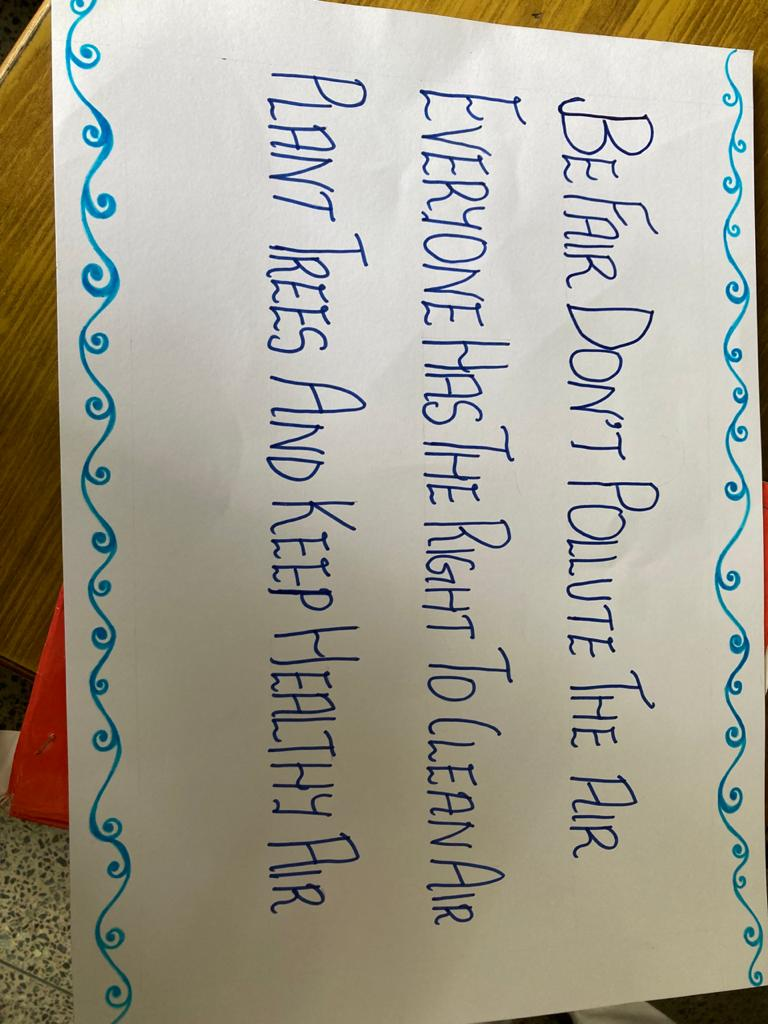 BE FAIR DON'T POLLUTE THE AIR
EVERYONE HAS THE RIGHT TO CLEAN AIR
PLANT TREES AND KEEP HEALTHY AIR